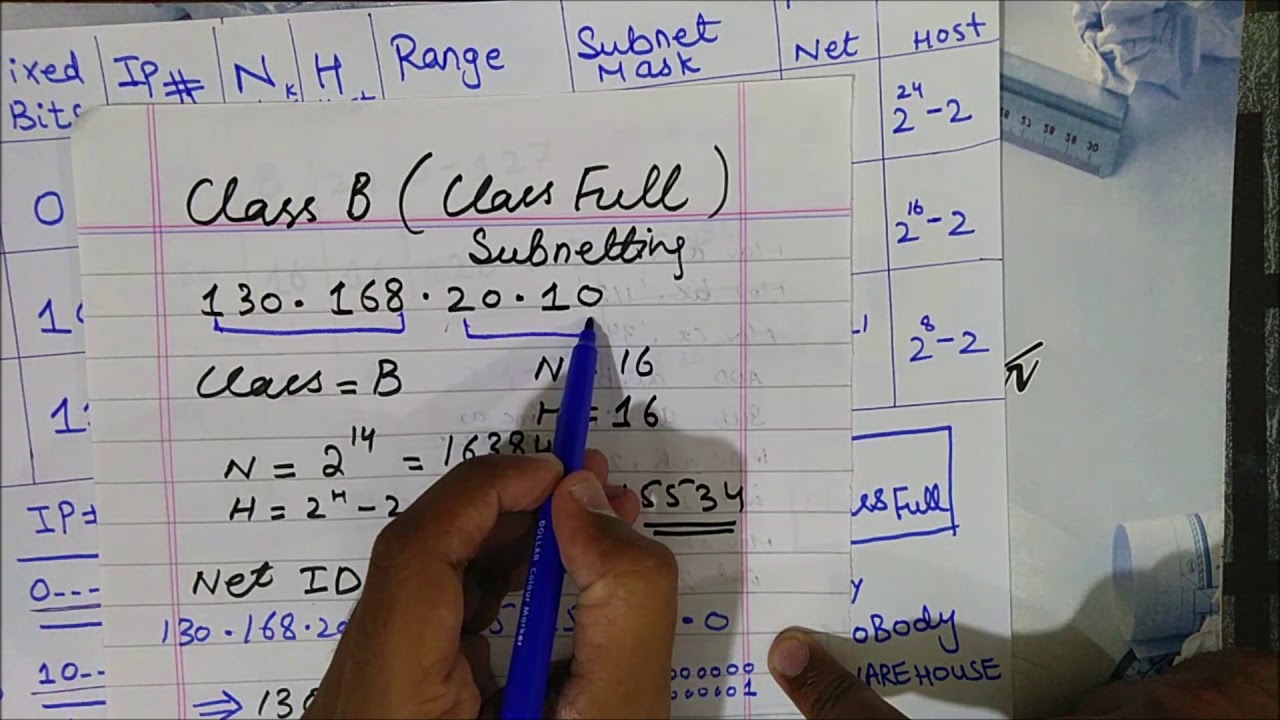 ixed Bits IP# N K H Range Subnet Mask Net HOST
2^24-2
0
2^16-2
2^8-2
Class B (Class Full)
Subnetting
130.168.20.10
Class = B N = 16
H = 16
N = 2^14 = 16384
H = 2^H-2 5534
Net ID
130.168.20 .0
⇒ 130
IP=
0---
10--
ss Full
y
oBody
WAREHOUSE
000000
000001
DOLLAR Colour Marker
27 28 29 30